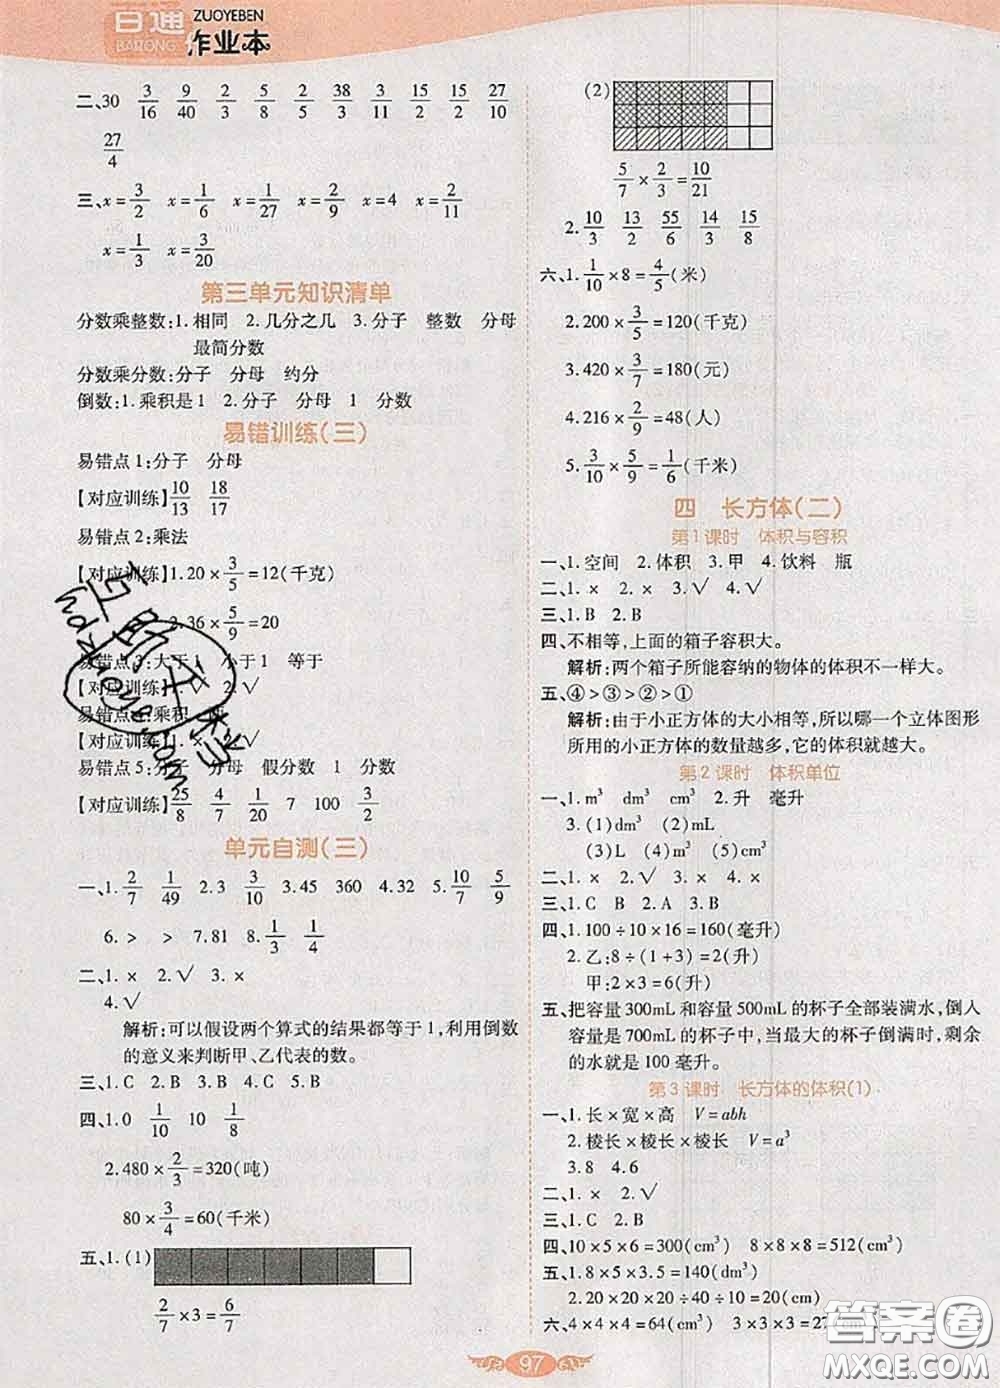 百通
BAITONG
ZUOYEBEN
作业本
二、30 3/16 9/40 2/3 5/8 2/5 38/3 3/11 15/2 15/2 27/10
27/4
三、x=3/2 x=1/6 x=1/27 x=2/9 x=4 x=2/11
x=1/3 x=3/20
第三单元知识清单
分数乘整数:1.相同 2.几分之几 3.分子 整数 分母
最简分数
分数乘分数:分子 分母 约分
倒数:1.乘积是1 2.分子 分母 1 分数
易错训练(三)
易错点1:分子 分母
【对应训练】10/13 18/17
易错点2:乘法
【对应训练】1.20×3/5=12(千克)
2.36×5/9=20
易错点3:大于1 小于1 等于
【对应训练】1. 2.√
易错点4:乘积
【对应训练】1.× 2.√
易错点5:分子 分母 假分数 1 分数
【对应训练】25/8 4/7 1/20 7 100 3/2
单元自测(三)
一、1.2/7 1/49 2.3 3/10 3.45 360 4.32 5.10/7 5/9
6.> > 7.81 8.1/3 1/4
二、1.× 2.√ 3.×
4.√
解析:可以假设两个算式的结果都等于1,利用倒数
的意义来判断甲、乙代表的数。
三、1.C 2.B 3.B 4.C 5.B
四、1.0 1/10 10 1/8
2.480×2/3=320(吨)
80×3/4=60(千米)
五、1.(1)
2/7×3=6/7
(2)
5/7×2/3=10/21
2.10/3 13/2 55/6 14/3 15/8
六、1.1/10×8=4/5(米)
2.200×3/5=120(千克)
3.420×3/7=180(元)
4.216×2/9=48(人)
5.3/10×5/9=1/6(千米)
四 长方体(二)
第1课时 体积与容积
一、1.空间 2.体积 3.甲 4.饮料 瓶
二、1.× 2.× 3.√ 4.√
三、1.B 2.B
四、不相等,上面的箱子容积大。
解析:两个箱子所能容纳的物体的体积不一样大。
五、④>③>②>①
解析:由于小正方体的大小相等,所以哪一个立体图形
所用的小正方体的数量越多,它的体积就越大。
第2课时 体积单位
一、1.m³ dm³ cm³ 2.升 毫升
3.(1)dm³ (2)mL
(3)L (4)m³ (5)cm³
二、1.× 2.√ 3.× 4.×
三、1.C B 2.A 3.B
四、1.100÷10×16=160(毫升)
2.乙:8÷(1+3)=2(升)
甲:2×3=6(升)
五、把容量300mL和容量500mL的杯子全部装满水,倒人
容量是700mL的杯子中,当最大的杯子倒满时,剩余
的水就是100毫升。
第3课时 长方体的体积(1)
一、1.长×宽×高 V=abh
2.棱长×棱长×棱长 V=a³
3.8 4.6
二、1.× 2.√
三、1.C 2.B
四、10×5×6=300(cm³) 8×8×8=512(cm³)
五、1.8×5×3.5=140(dm³)
2.20×20×20÷40÷10=20(cm)
六、4×4×4=64(cm³) 3×3×3=27(cm³)
97
答案圈
MXQE.COM